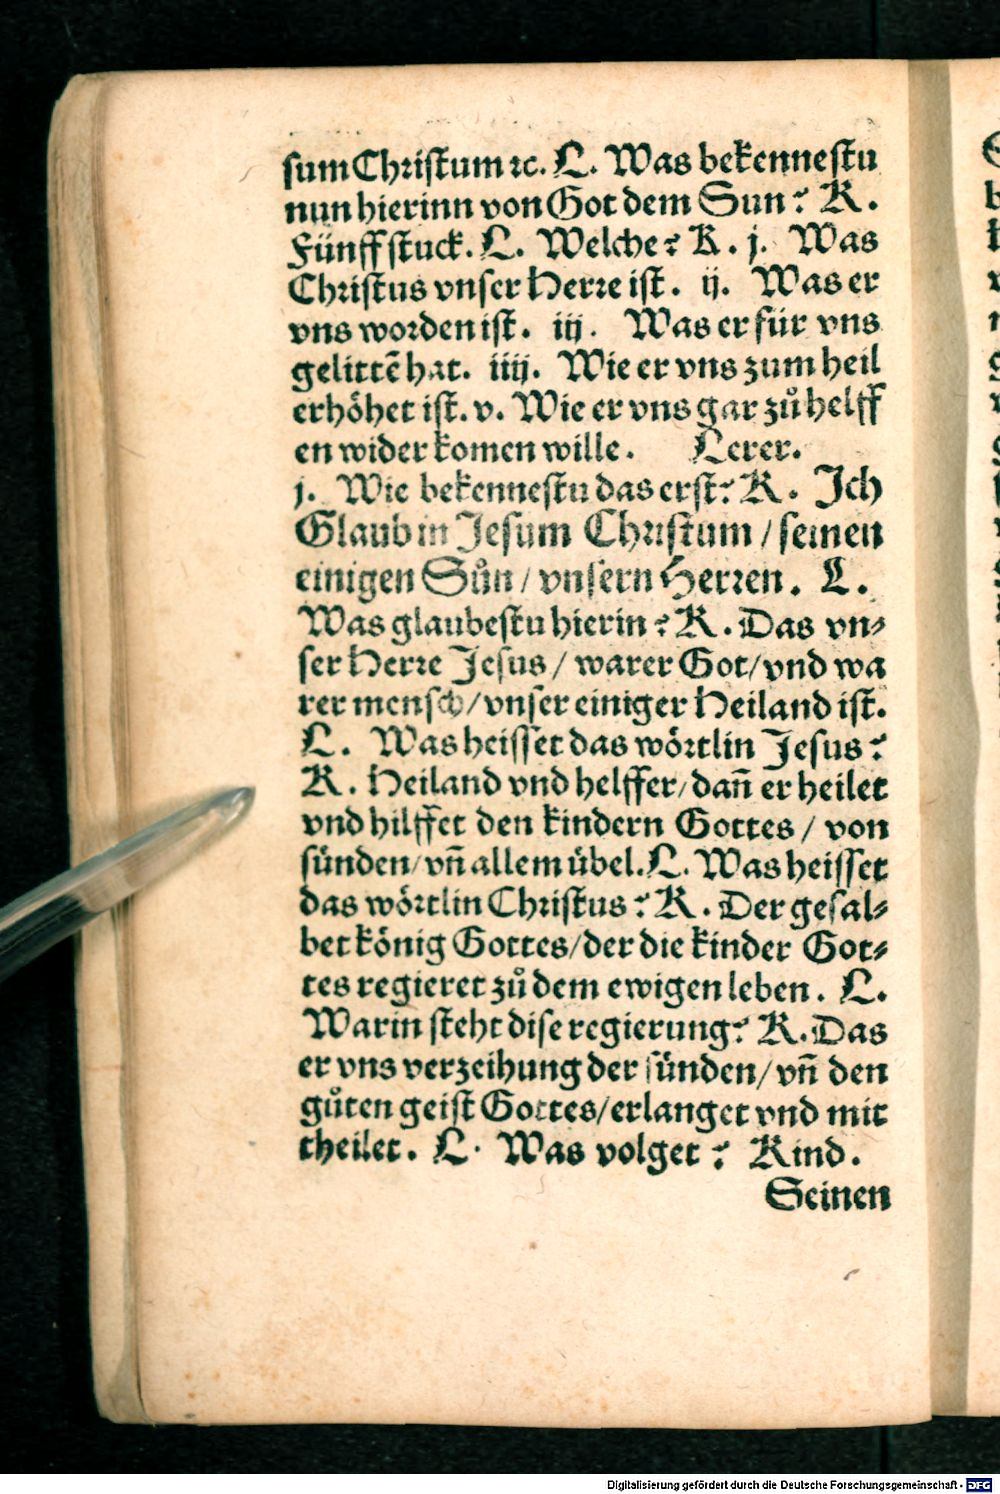 sum Christum ꝛc. L. Was bekennestu
nun hierinn von Got dem Sun? K.
Fünff stuck. L. Welche? K. j. Was
Christus vnser Herre ist. ij. Was er
vns worden ist. iij. Was er für vns
gelittē hat. iiij. Wie er vns zum heil
erhöhet ist. v. Wie er vns gar zů helff
en wider komen wille. Lerer.
j. Wie bekennestu das erst? K. Ich
Glaub in Jesum Christum / seinen
einigen Sůn / vnsern Herren. L.
Was glaubestu hierin? K. Das vn⸗
ser Herre Jesus / warer Got / vnd wa
rer mensch / vnser einiger Heiland ist.
L. Was heisset das wörtlin Jesus?
K. Heiland vnd helffer / dañ er heilet
vnd hilffet den kindern Gottes / von
sünden / vñ allem übel. L. Was heisset
das wörtlin Christus? K. Der gesal⸗
bet könig Gottes / der die kinder Got⸗
tes regieret zů dem ewigen leben. L.
Warin steht dise regierung? K. Das
er vns verzeihung der sünden / vñ den
gůten geist Gottes / erlanget vnd mit
theilet. L. Was volget? Kind.
Seinen
Digitalisierung gefördert durch die Deutsche Forschungsgemeinschaft - DFG